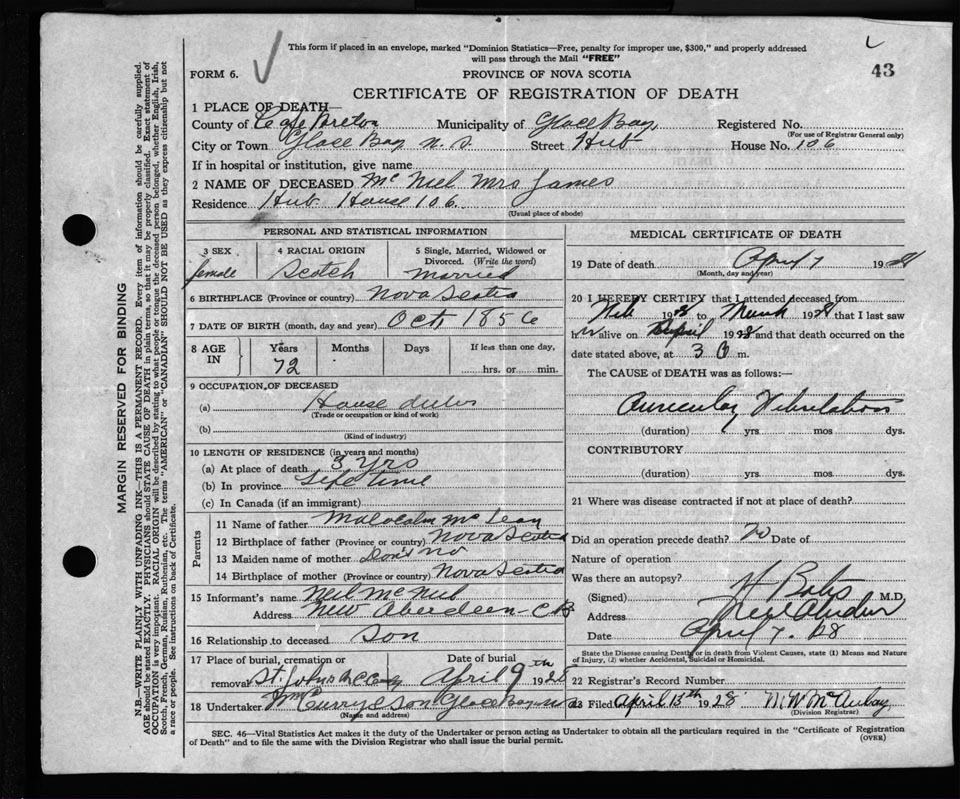 This form if placed in an envelope, marked "Dominion Statistics—Free, penalty for improper use, $300," and properly addressed
will pass through the Mail "FREE"
43
FORM 6.
PROVINCE OF NOVA SCOTIA
CERTIFICATE OF REGISTRATION OF DEATH
1 PLACE OF DEATH—
County of Cape Breton Municipality of Glace Bay Registered No.
(For use of Registrar General only)
City or Town Glace Bay N. S. Street Hub House No. 106
If in hospital or institution, give name
2 NAME OF DECEASED Mc Niel Mrs James
Residence Hub House 106.
(Usual place of abode)
PERSONAL AND STATISTICAL INFORMATION
3 SEX
female
4 RACIAL ORIGIN
Scotch
5 Single, Married, Widowed or
Divorced. (Write the word)
married
6 BIRTHPLACE (Province or country) Nova Scotia
7 DATE OF BIRTH (month, day and year) Oct, 1856
8 AGE IN
Years
72
Months
Days
If less than one day,
hrs. or min.
9 OCCUPATION, OF DECEASED
(a) House
(Trade or occupation or kind of work)
(b)
(Kind of industry)
10 LENGTH OF RESIDENCE (in years and months)
(a) At place of death 3 yrs
(b) In province life time
(c) In Canada (if an immigrant)
Parents
11 Name of father Malocalm Mc Lean
12 Birthplace of father (Province or country) Nova Scotia
13 Maiden name of mother Don't no
14 Birthplace of mother (Province or country) Nova Scotia
15 Informant's name Neil Mc Neil
Address New Aberdeen - C B
16 Relationship to deceased Son
17 Place of burial, cremation or
removal St. John's
Date of burial
April 9th 1928
18 Undertaker Curry & Son Glace Bay
(Name and address)
MEDICAL CERTIFICATE OF DEATH
19 Date of death April 7 1928
(Month, day and year)
20 I HEREBY CERTIFY that I attended deceased from
1928 to March 1928 that I last saw
h er alive on April 1928 and that death occurred on the
date stated above, at 3 m.
The CAUSE of DEATH was as follows:—
Auricular Fibrulation
(duration) yrs mos dys.
CONTRIBUTORY
(duration) yrs. mos. dys.
21 Where was disease contracted if not at place of death?
Did an operation precede death? No Date of
Nature of operation
Was there an autopsy?
(Signed) M.D.
Address New
Date April 7. 28
State the Disease causing Death, or in death from Violent Causes, state (1) Means and Nature
of Injury, (2) whether Accidental, Suicidal or Homicidal.
22 Registrar's Record Number
23 Filed April 13th 1928
(Division Registrar)
SEC. 46—Vital Statistics Act makes it the duty of the Undertaker or person acting as Undertaker to obtain all the particulars required in the "Certificate of Registration
of Death" and to file the same with the Division Registrar who shall issue the burial permit.
(OVER)
MARGIN RESERVED FOR BINDING
N.B.—WRITE PLAINLY WITH UNFADING INK—THIS IS A PERMANENT RECORD. Every item of information should be carefully supplied.
AGE should be stated EXACTLY. PHYSICIANS should STATE CAUSE OF DEATH in plain terms, so that it may be properly classified. Exact statement of
OCCUPATION is very important. RACIAL ORIGIN will be described by stating to what people or tongue the deceased person belonged, whether English, Irish,
Scotch, French, German, Russian, Ruthenian, etc. The terms "AMERICAN" or "CANADIAN" SHOULD NOT BE USED as they express citizenship but not
a race or people. See instructions on back of Certificate.